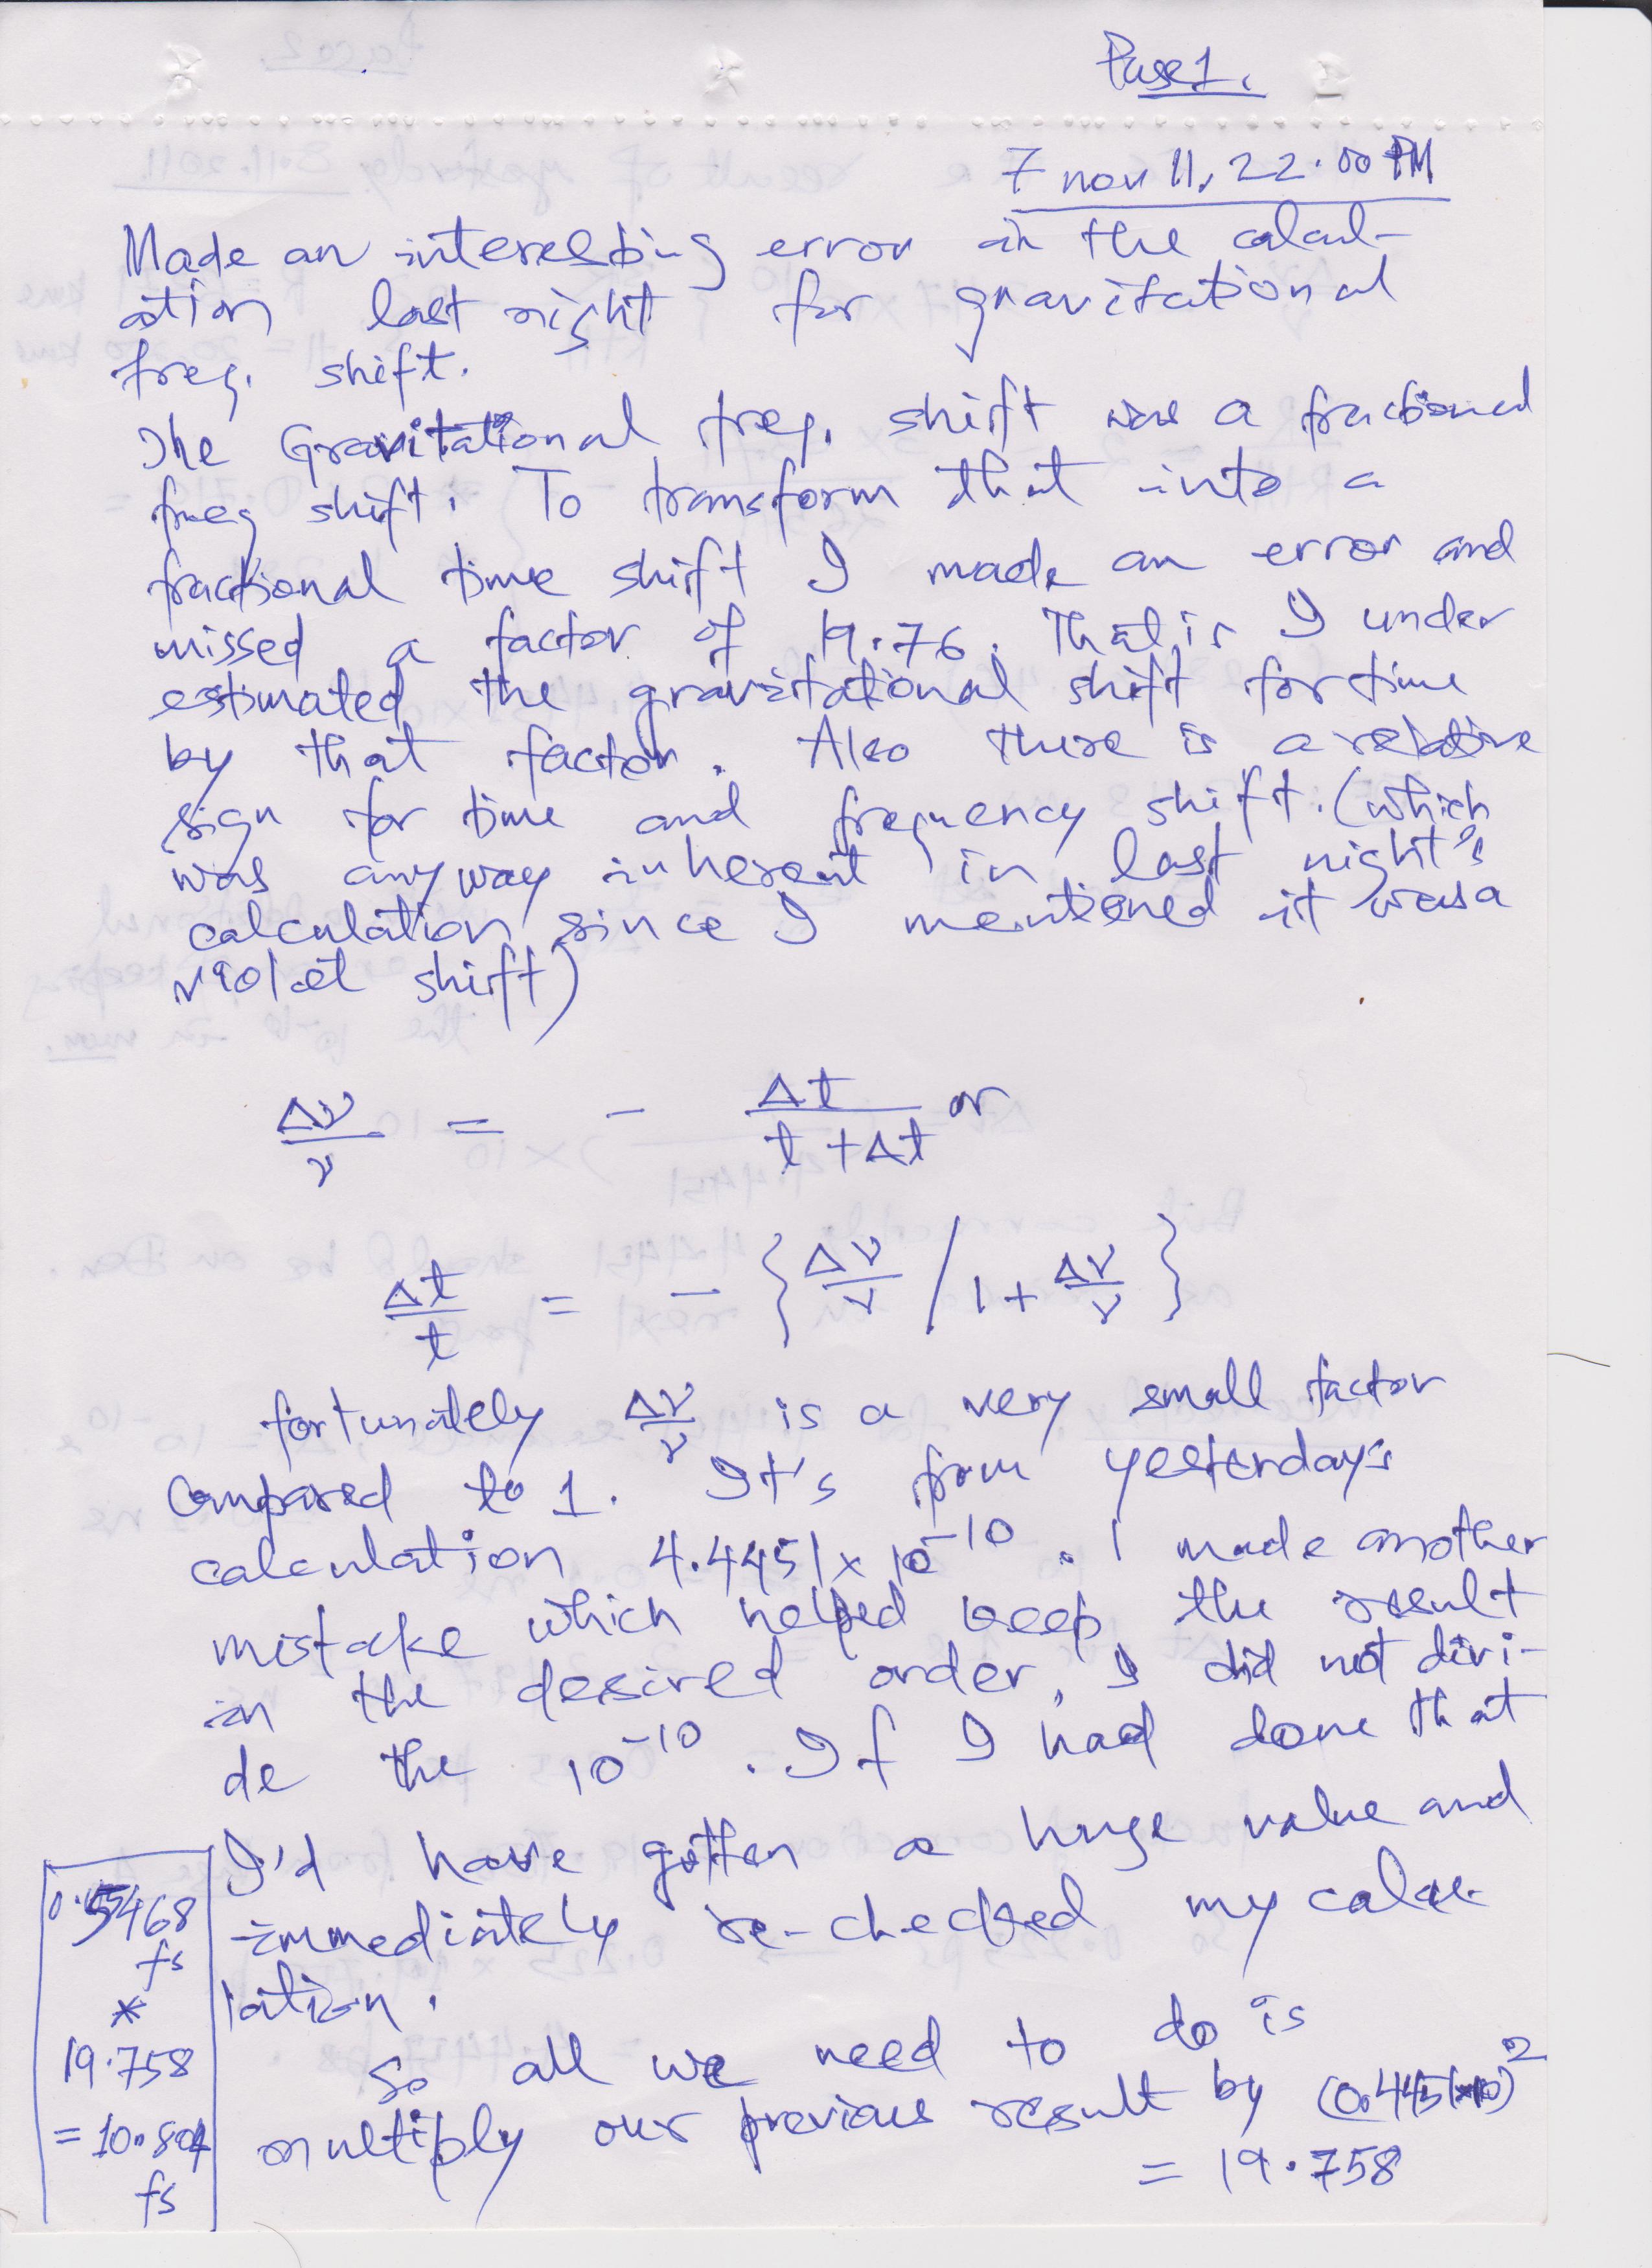 Page 1.
7 nov 11, 22.00 PM
Made an interesting error in the calcul-
ation last night for gravitational
freq. shift.
The Gravitational freq. shift was a fractional
freq shift. To transform that into a
fractional time shift I made an error and
missed a factor of 19.76. That is I under
estimated the gravitational shift for time
by that factor. Also there is a relative
sign for time and frequency shift. (which
was anyway inherent in last night's
calculation since I mentioned it was a
violet shift)
Δν/ν = - Δt/(t+Δt) or
Δt/t = - {Δν/ν / 1 + Δν/ν}
fortunately Δν/ν is a very small factor
compared to 1. It's from yesterday's
calculation 4.4451 x 10^-10. I made another
mistake which helped keep the result
in the desired order, I did not divi-
de the 10^-10. If I had done that
I'd have gotten a huge value and
immediately re-checked my calcu-
lation.
So all we need to do is
multiply our previous result by (0.4451x10)^2
= 19.758
0.5468
fs
*
19.758
= 10.804
fs